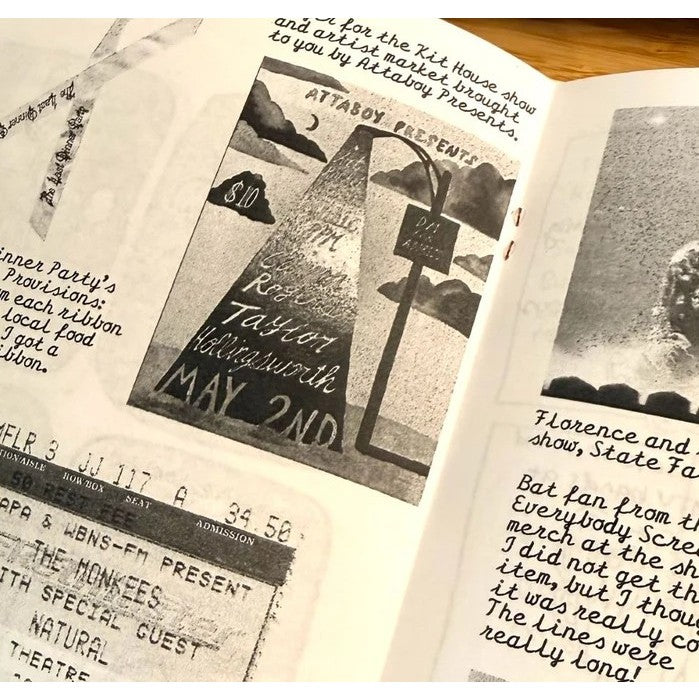 for the Kit House show
and artist market brought
to you by Attaboy Presents.
The Last Dinner
The Last Dinner Party
ATTABOY PRESENTS
$10
PM
Taylor
Hollingsworth
MAY 2ND
inner Party's
Provisions:
m each ribbon
local food
I got a
ibbon.
MFLR 3 JJ 117 A 34.50
TION/AISLE ROW/BOX SEAT ADMISSION
APA & WBNS-FM PRESENT
THE MONKEES
ITH SPECIAL GUEST
NATURAL
THEATRE
Florence and
show, State Fa
Bat fan from th
Everybody Scre
merch at the sh
I did not get th
item, but I thou
it was really co
The lines were
really long!